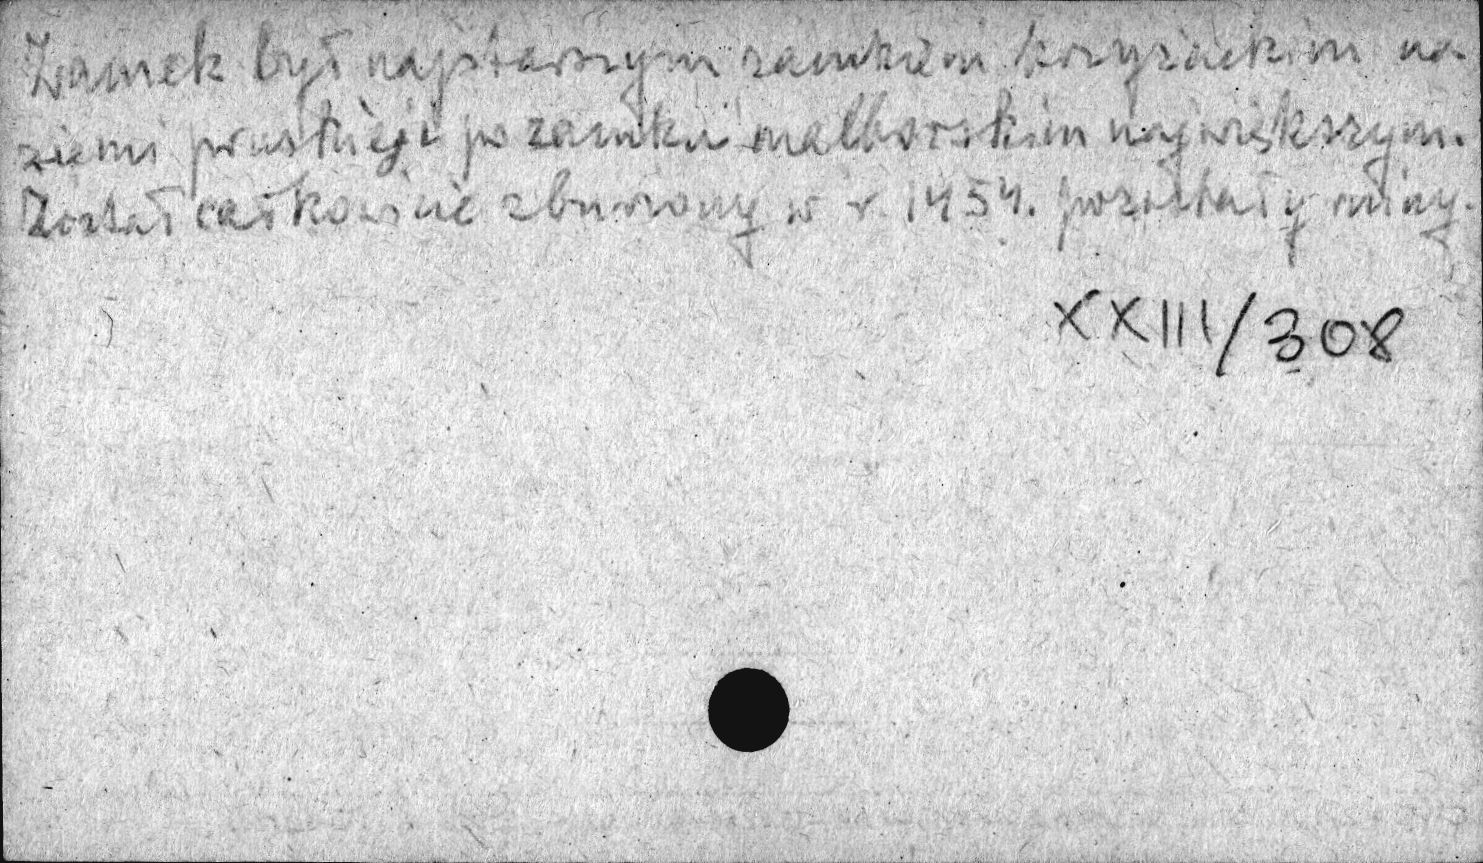 Zamek był najstarszym zamkiem krzyżackim na
ziemi pruskiej i po zamku malborskim największym.
Został całkowicie zburzony w r. 1454. pozostały ruiny.
XXIII/308